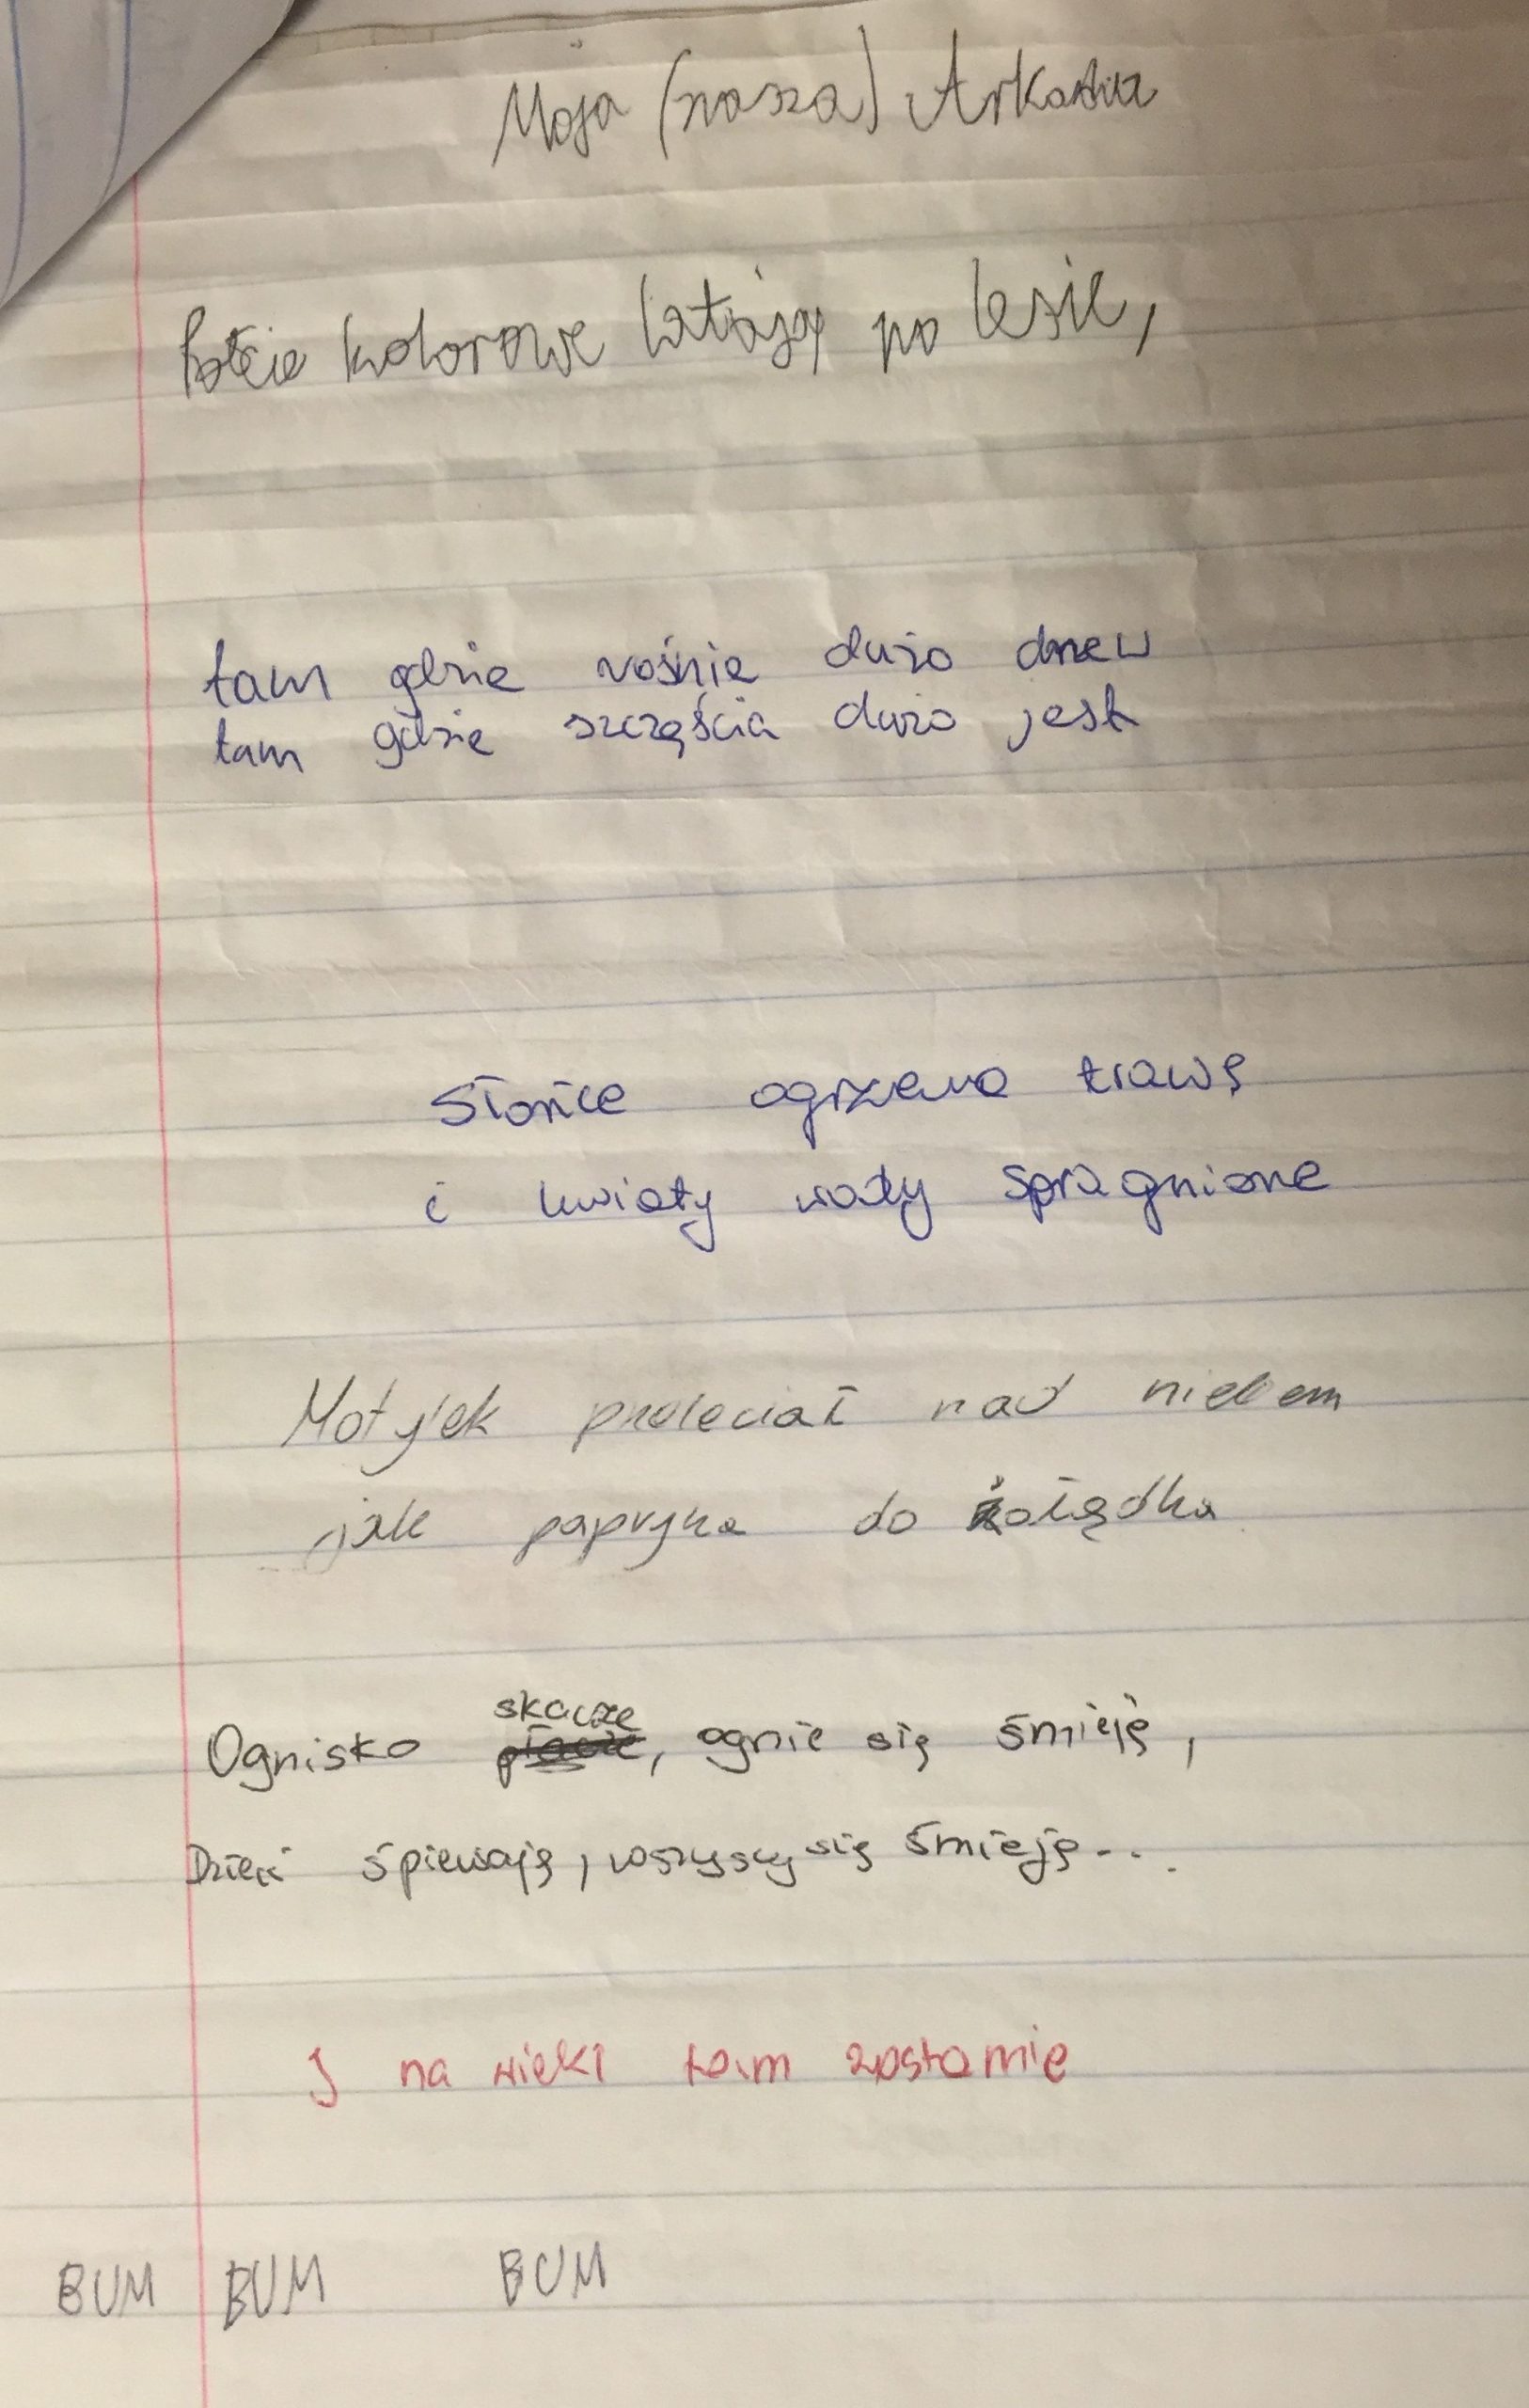 Moja (nasza) Arkadia
kolorowe latają po lesie,
tam gdzie rośnie dużo drzew
tam gdzie szczęścia dużo jest
Słońce ogrzewa trawę
i kwiaty wody spragnione
Motylek przeleciał nad niebem
jak papryka do żołądka
skacze
Ognisko płacze, ognie się śmieję,
Dzieci śpiewają, wszyscy się śmieję...
I na wieki tam zostanie
BUM BUM BUM